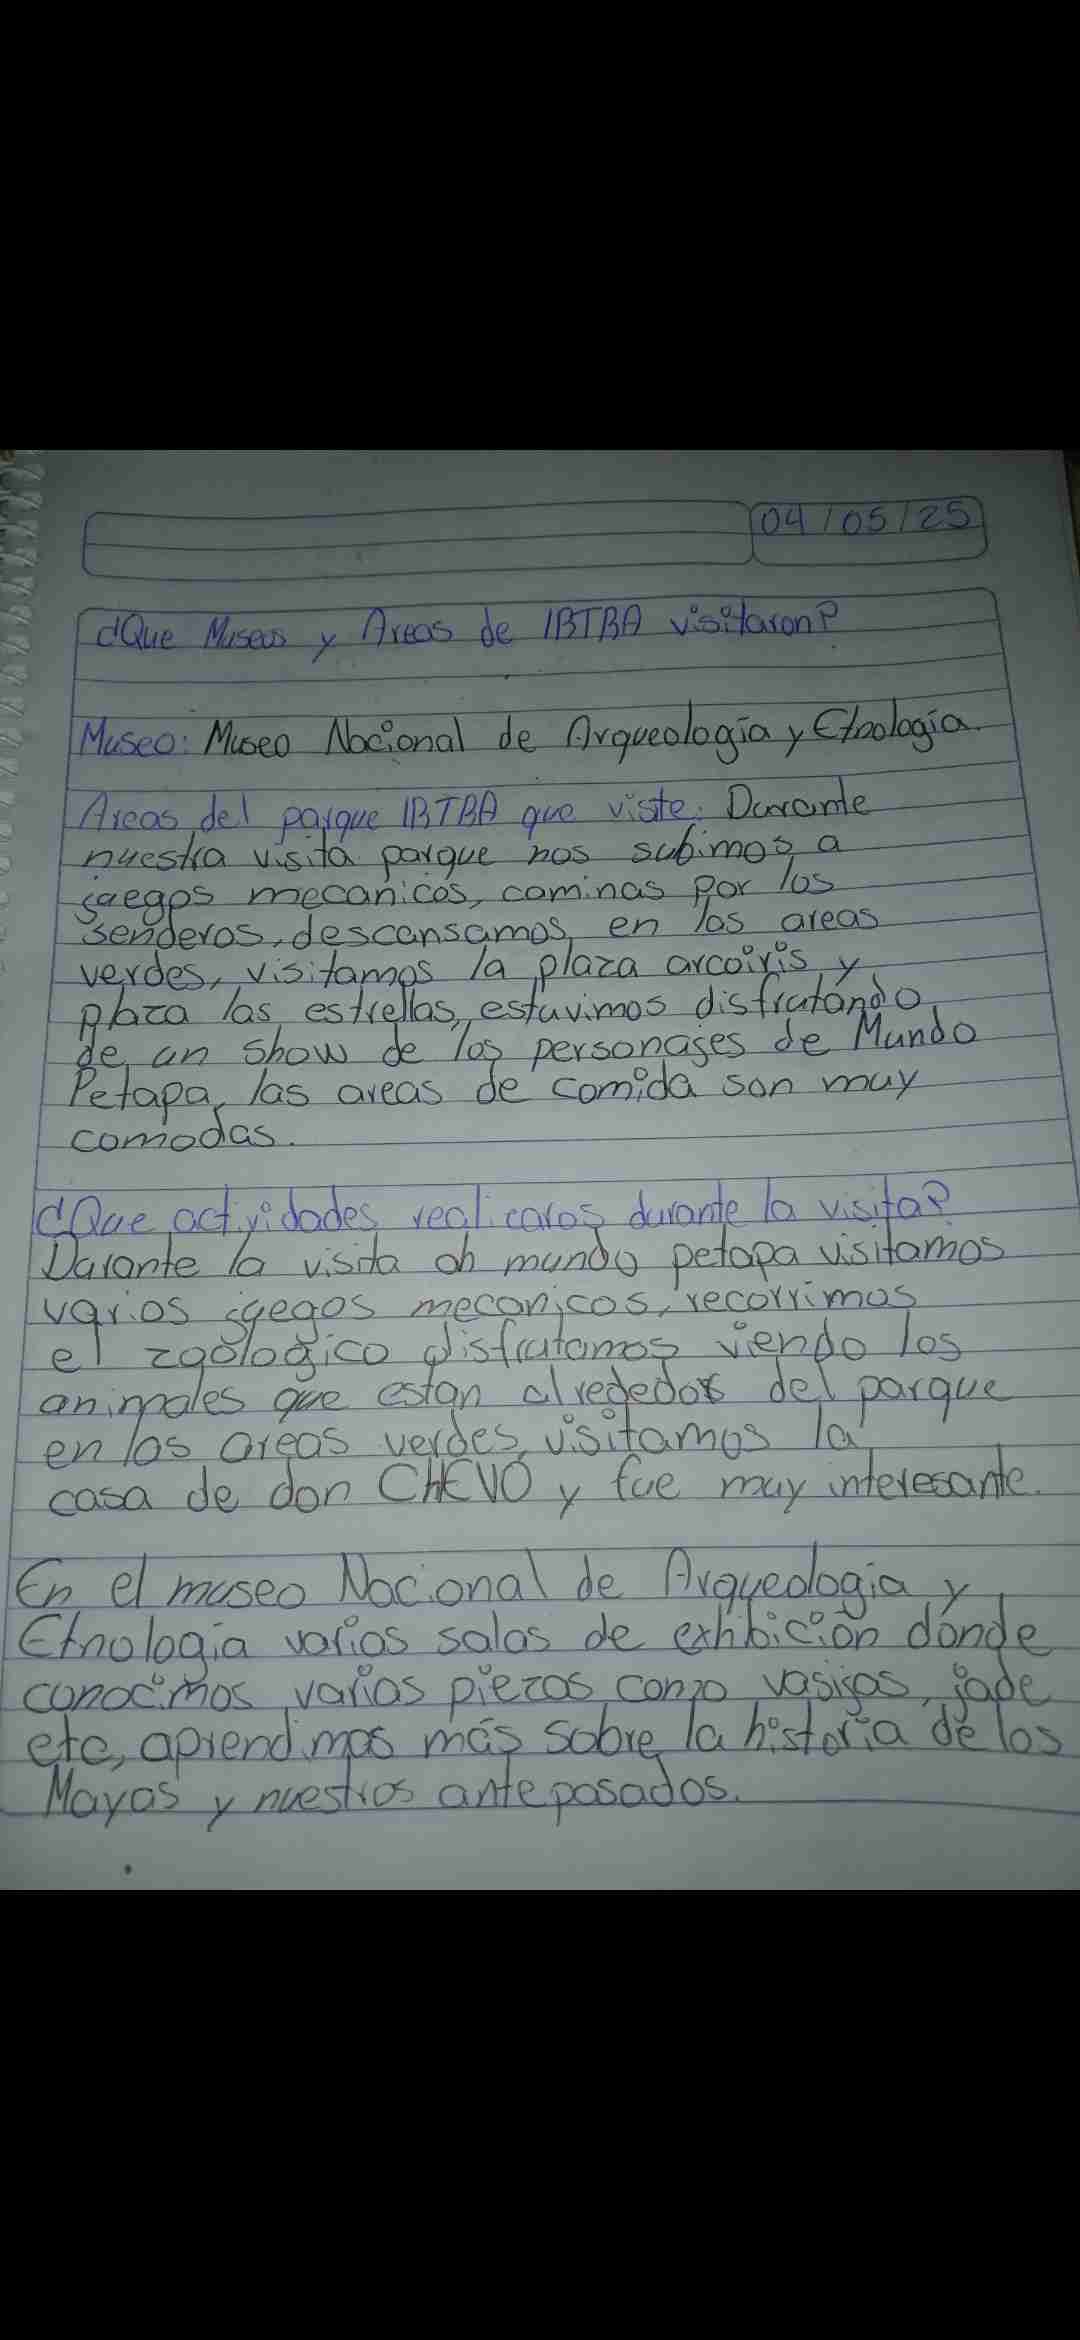 04/05/25
¿Que Museos y Areas de IRTRA visitaron?
Museo: Museo Nacional de Arqueología y Etnología.
Areas del parque IRTRA que viste: Durante
nuestra visita parque nos subimos a
juegos mecanicos, caminas por los
senderos, descansamos en las areas
verdes, visitamos la plaza arcoiris y
plaza las estrellas, estuvimos disfrutando
de un show de los personajes de Mundo
Petapa, las areas de comida son muy
comodas.
¿Que actividades realicaros durante la visita?
Durante la visita ah mundo petapa visitamos
varios juegos mecanicos, recorrimos
el zoologico disfrutamos viendo los
animales que estan alrededor del parque
en las areas verdes, visitamos la
casa de don CHEVO y fue muy interesante.
En el museo Nacional de Arqueologia y
Etnologia varios salas de exhbición donde
conocimos varias piezas como vasijas, jade
etc, aprendimos más sobre la historia de los
Mayas y nuestros antepasados.